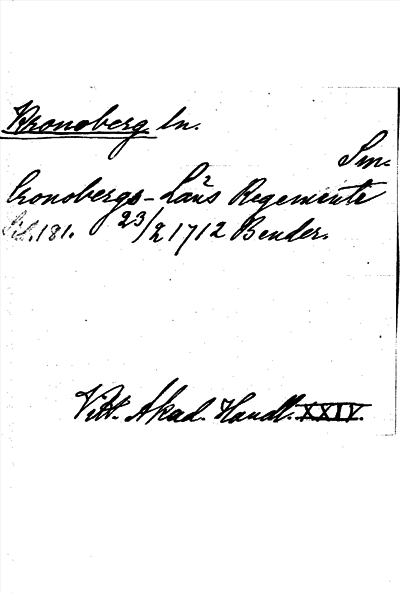 Kronoberg ln.
Sm.
Cronobergs-Läns Regemente
s. 181. 23/2 1712 Bender.
Vitt. Akad. Handl. XXIV.